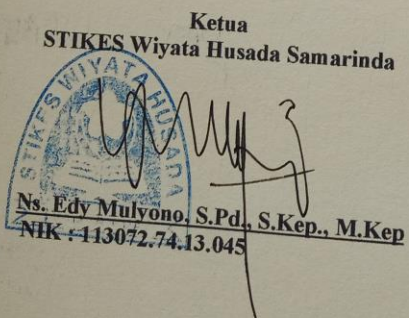 Ketua
STIKES Wiyata Husada Samarinda
STIKES WIYATA HUSADA
Ns. Edy Mulyono, S.Pd., S.Kep., M.Kep
NIK : 113072.74.13.045